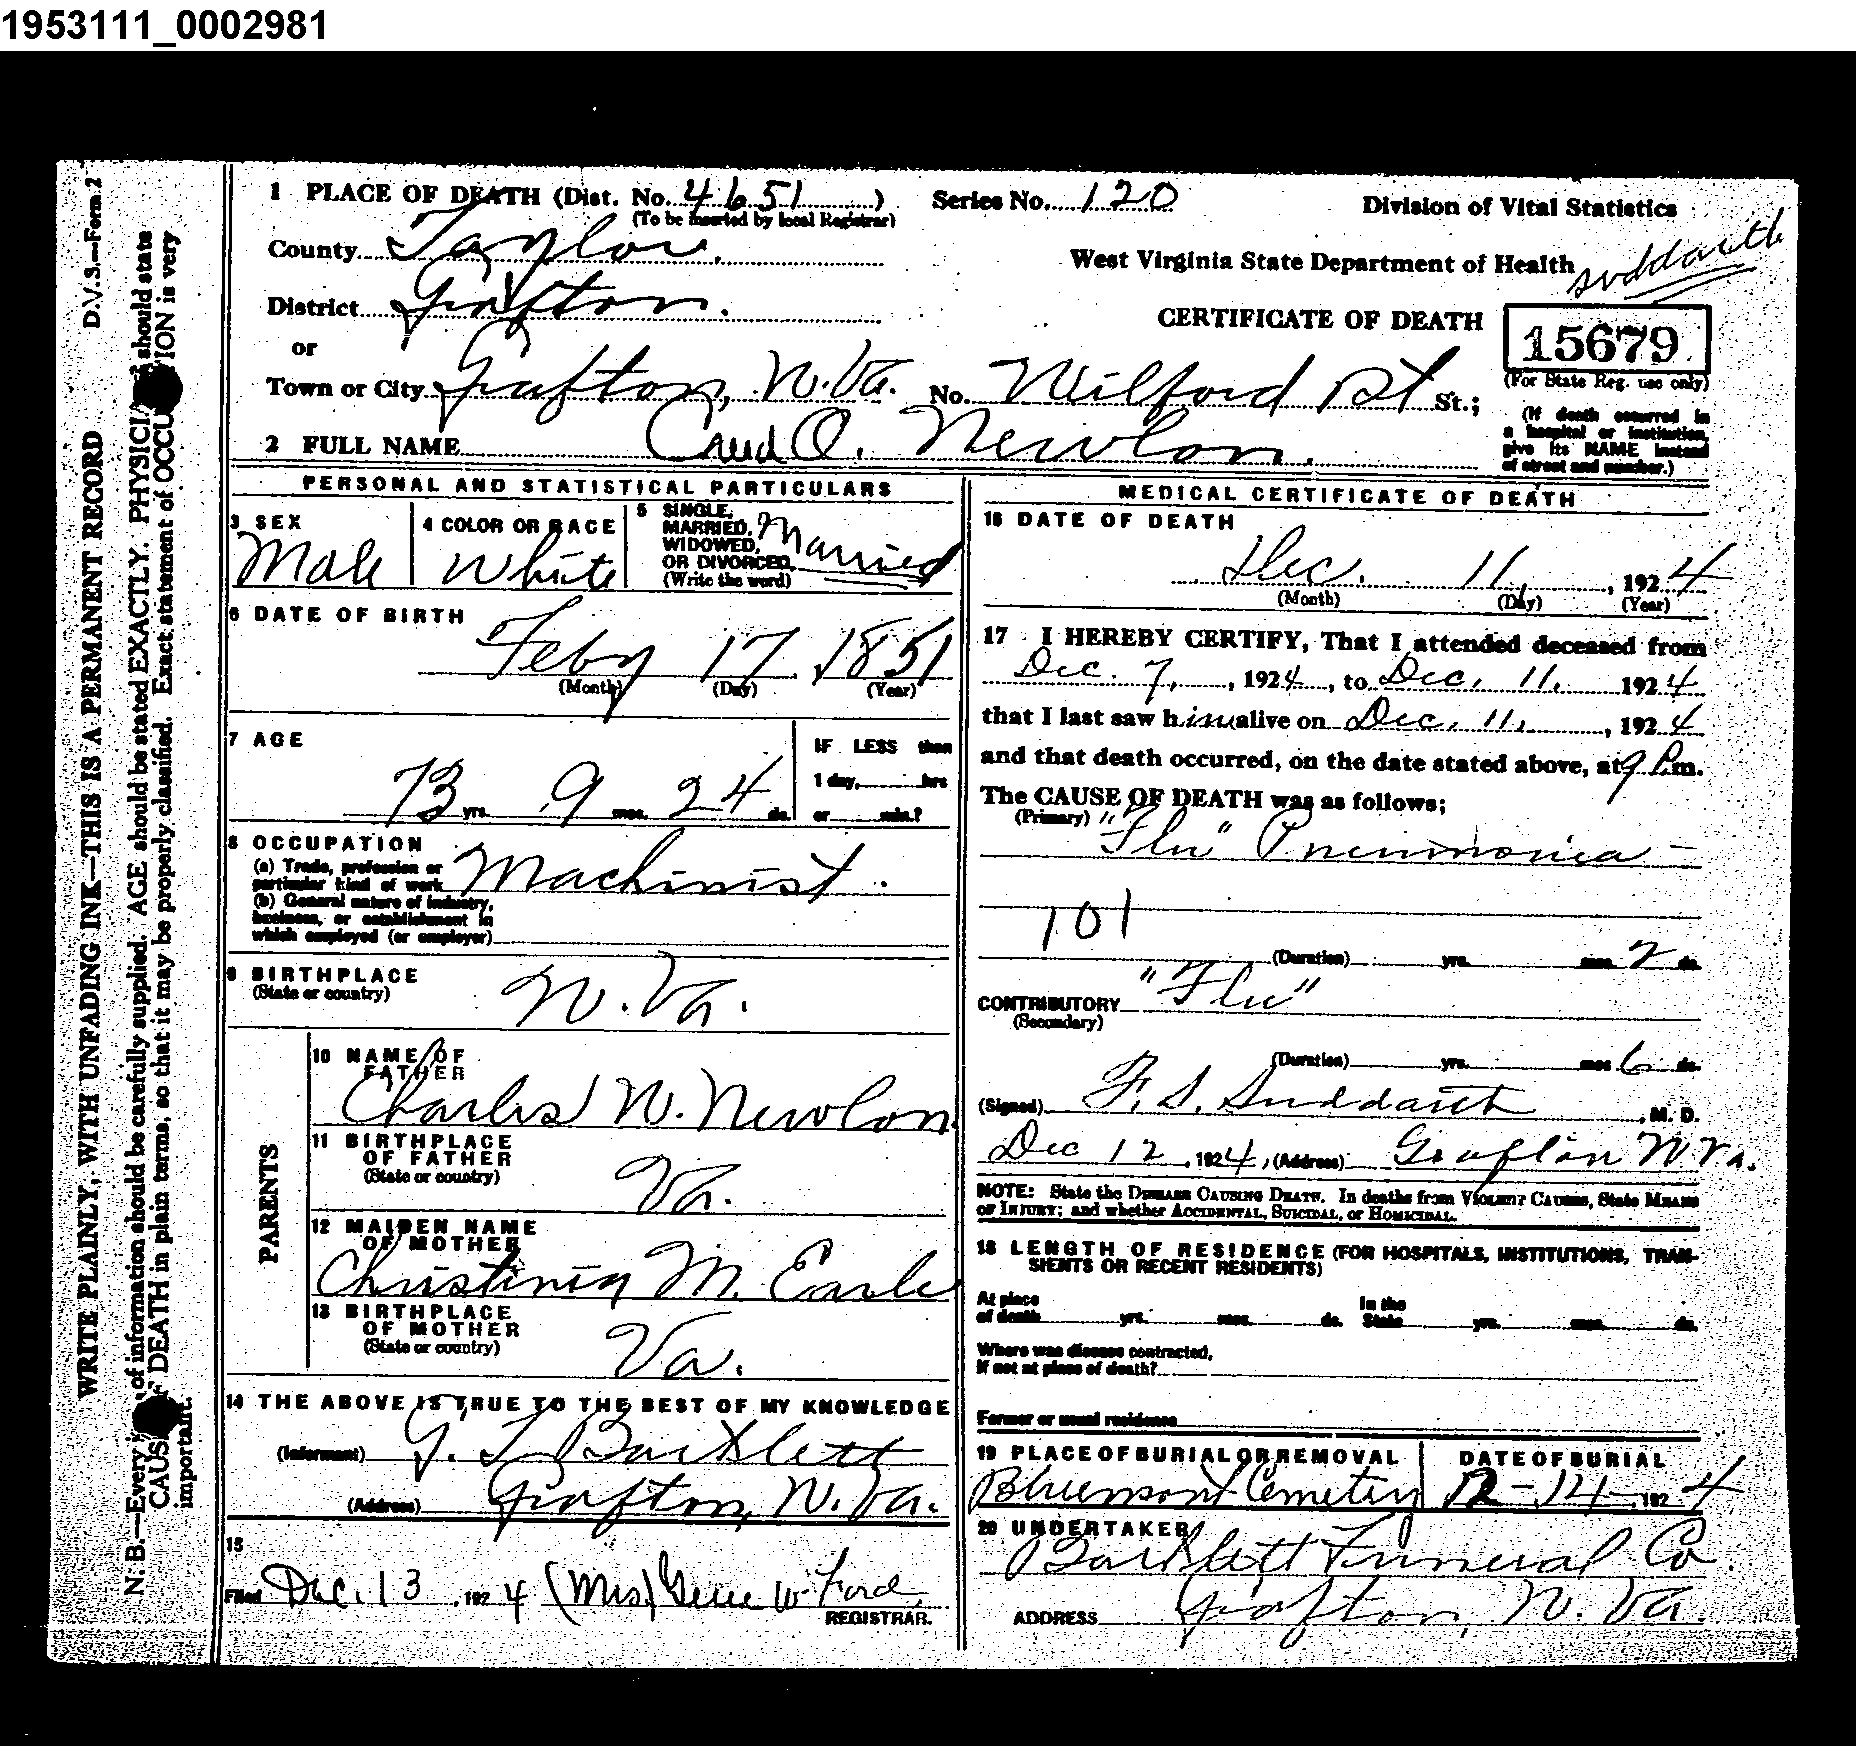 1953111_0002981
D.V.S.—Form 2
WRITE PLAINLY, WITH UNFADING INK—THIS IS A PERMANENT RECORD
N. B.—Every of information should be carefully supplied. AGE should be stated EXACTLY. PHYSICIA should state
CAUS DEATH in plain terms, so that it may be properly classified. Exact statement of OCCU TION is very
important.
1 PLACE OF DEATH (Dist. No. 4651 ) Series No. 120 Division of Vital Statistics
(To be inserted by local Registrar)
County Taylor. West Virginia State Department of Health suddarth
District Grafton. CERTIFICATE OF DEATH 15679
or
Town or City Grafton, W. Va. No. Wilford St St.; (For State Reg. use only)
(If death occurred in
a hospital or institution,
give its NAME instead
of street and number.)
2 FULL NAME O. Newlon.
PERSONAL AND STATISTICAL PARTICULARS
3 SEX
Male
4 COLOR OR RACE
White
5 SINGLE,
MARRIED,
WIDOWED,
OR DIVORCED.
(Write the word)
Married
6 DATE OF BIRTH
Feby 17 1851
(Month) (Day) (Year)
7 AGE
73 yrs. 9 mos. 24 ds.
IF LESS than
1 day, hrs
or min.?
8 OCCUPATION
(a) Trade, profession or
particular kind of work Machinist.
(b) General nature of industry,
business, or establishment in
which employed (or employer)
9 BIRTHPLACE
(State or country)
W. Va.
PARENTS
10 NAME OF
FATHER
Charles W. Newlon
11 BIRTHPLACE
OF FATHER
(State or country)
Va.
12 MAIDEN NAME
OF MOTHER
Christinia M. Earle
13 BIRTHPLACE
OF MOTHER
(State or country)
Va.
14 THE ABOVE IS TRUE TO THE BEST OF MY KNOWLEDGE
(Informant) Bartlett
(Address) Grafton, W. Va.
15
Filed Dec. 13, 1924 (Mrs) Gene W. Ford,
REGISTRAR.
MEDICAL CERTIFICATE OF DEATH
16 DATE OF DEATH
Dec. 11, , 1924
(Month) (Day) (Year)
17 I HEREBY CERTIFY, That I attended deceased from
Dec. 7, , 1924, to Dec. 11. 1924
that I last saw him alive on Dec. 11, , 1924
and that death occurred, on the date stated above, at 9 P.m.
The CAUSE OF DEATH was as follows;
(Primary) "Flu" Pneumonia -
101
(Duration) yrs. mos. 2 ds.
CONTRIBUTORY "Flu"
(Secondary)
(Duration) yrs. mos. 6 ds.
(Signed) F. S. Suddarth , M. D.
Dec 12, 1924, (Address) Grafton W Va.
NOTE: State the DISEASE CAUSING DEATH. In deaths from VIOLENT CAUSES, State MEANS
OF INJURY; and whether ACCIDENTAL, SUICIDAL, or HOMICIDAL.
18 LENGTH OF RESIDENCE (FOR HOSPITALS, INSTITUTIONS, TRAN-
SIENTS OR RECENT RESIDENTS)
At place
of death yrs. mos. ds. In the
State yrs. mos. ds.
Where was disease contracted,
If not at place of death?
Former or usual residence
19 PLACE OF BURIAL OR REMOVAL
Bluemont Cemetery
DATE OF BURIAL
12-14-1924
20 UNDERTAKER
Bartlett Funeral Co.
ADDRESS Grafton, W. Va.